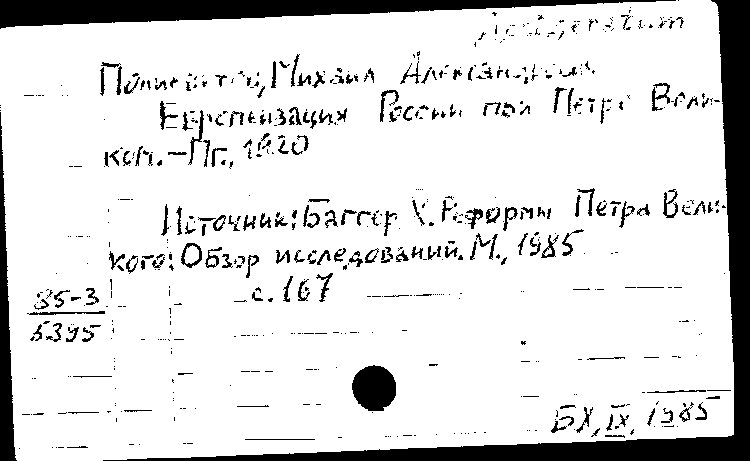 Desideratum
Полиевктов, Михаил Александрович
Европеизация России при Петре Вели-
ком. – Пг., 1920
Источник: Баггер Х. Реформы Петра Вели-
кого: Обзор исследований. М., 1985
с. 167
85-3
5395
БХ, IX, 1985